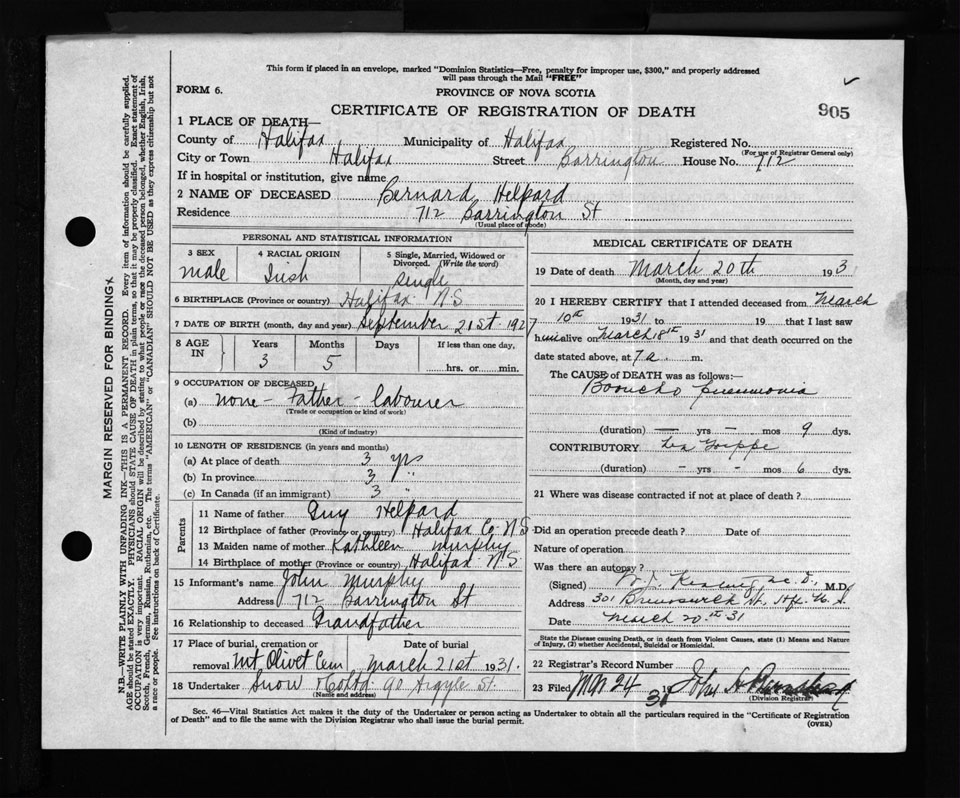 This form if placed in an envelope, marked "Dominion Statistics—Free, penalty for improper use, $300," and properly addressed
will pass through the Mail "FREE"
FORM 6.
PROVINCE OF NOVA SCOTIA
CERTIFICATE OF REGISTRATION OF DEATH
905
1 PLACE OF DEATH—
County of Halifax Municipality of Halifax Registered No.
(For use of Registrar General only)
City or Town Halifax Street Barrington House No. 712
If in hospital or institution, give name
2 NAME OF DECEASED Bernard Helpard
Residence 712 Barrington St
(Usual place of abode)
PERSONAL AND STATISTICAL INFORMATION
3 SEX male
4 RACIAL ORIGIN Irish
5 Single, Married, Widowed or Divorced. (Write the word) Single
6 BIRTHPLACE (Province or country) Halifax N.S
7 DATE OF BIRTH (month, day and year) September 21st 1927
8 AGE IN Years Months Days If less than one day,
3 5 hrs. or min.
9 OCCUPATION OF DECEASED
(a) none - Father - labourer
(Trade or occupation or kind of work)
(b)
(Kind of industry)
10 LENGTH OF RESIDENCE (in years and months)
(a) At place of death 3 yrs
(b) In province 3 "
(c) In Canada (if an immigrant) 3 "
Parents
11 Name of father Guy Helpard
12 Birthplace of father (Province or country) Halifax Co N.S
13 Maiden name of mother Kathleen Murphy
14 Birthplace of mother (Province or country) Halifax N.S.
15 Informant's name John Murphy
Address 712 Barrington St
16 Relationship to deceased Grandfather
17 Place of burial, cremation or removal Mt Olivet Cem Date of burial March 21st 1931.
18 Undertaker Snow & Co Ltd 90 Argyle St.
(Name and address)
MEDICAL CERTIFICATE OF DEATH
19 Date of death March 20th 193
(Month, day and year)
20 I HEREBY CERTIFY that I attended deceased from March
10th 1931 to 19 that I last saw
him alive on March 18th 1931 and that death occurred on the
date stated above, at 7 a. m.
The CAUSE of DEATH was as follows:—
Broncho pneumonia
(duration) — yrs – mos 9 dys.
CONTRIBUTORY La Grippe
(duration) – yrs – mos 6 dys.
21 Where was disease contracted if not at place of death?
Did an operation precede death? Date of
Nature of operation
Was there an autopsy?
(Signed) M.D.
Address 301 Brunswick St, Hfx. N.S.
Date March 20th 31
State the Disease causing Death, or in death from Violent Causes, state (1) Means and Nature
of Injury, (2) whether Accidental, Suicidal or Homicidal.
22 Registrar's Record Number
23 Filed Mar 24 31 John H
(Division Registrar)
Sec. 46—Vital Statistics Act makes it the duty of the Undertaker or person acting as Undertaker to obtain all the particulars required in the "Certificate of Registration
of Death" and to file the same with the Division Registrar who shall issue the burial permit.
(OVER)
MARGIN RESERVED FOR BINDING
N.B.—WRITE PLAINLY WITH UNFADING INK—THIS IS A PERMANENT RECORD. Every item of information should be carefully supplied.
AGE should be stated EXACTLY. PHYSICIANS should STATE CAUSE OF DEATH in plain terms, so that it may be properly classified. Exact statement of
OCCUPATION is very important. RACIAL ORIGIN will be described by stating to what people or race the deceased person belonged, whether English, Irish,
Scotch, French, German, Russian, Ruthenian, etc. The terms "AMERICAN" or "CANADIAN" SHOULD NOT BE USED as they express citizenship but not
a race or people. See instructions on back of Certificate.